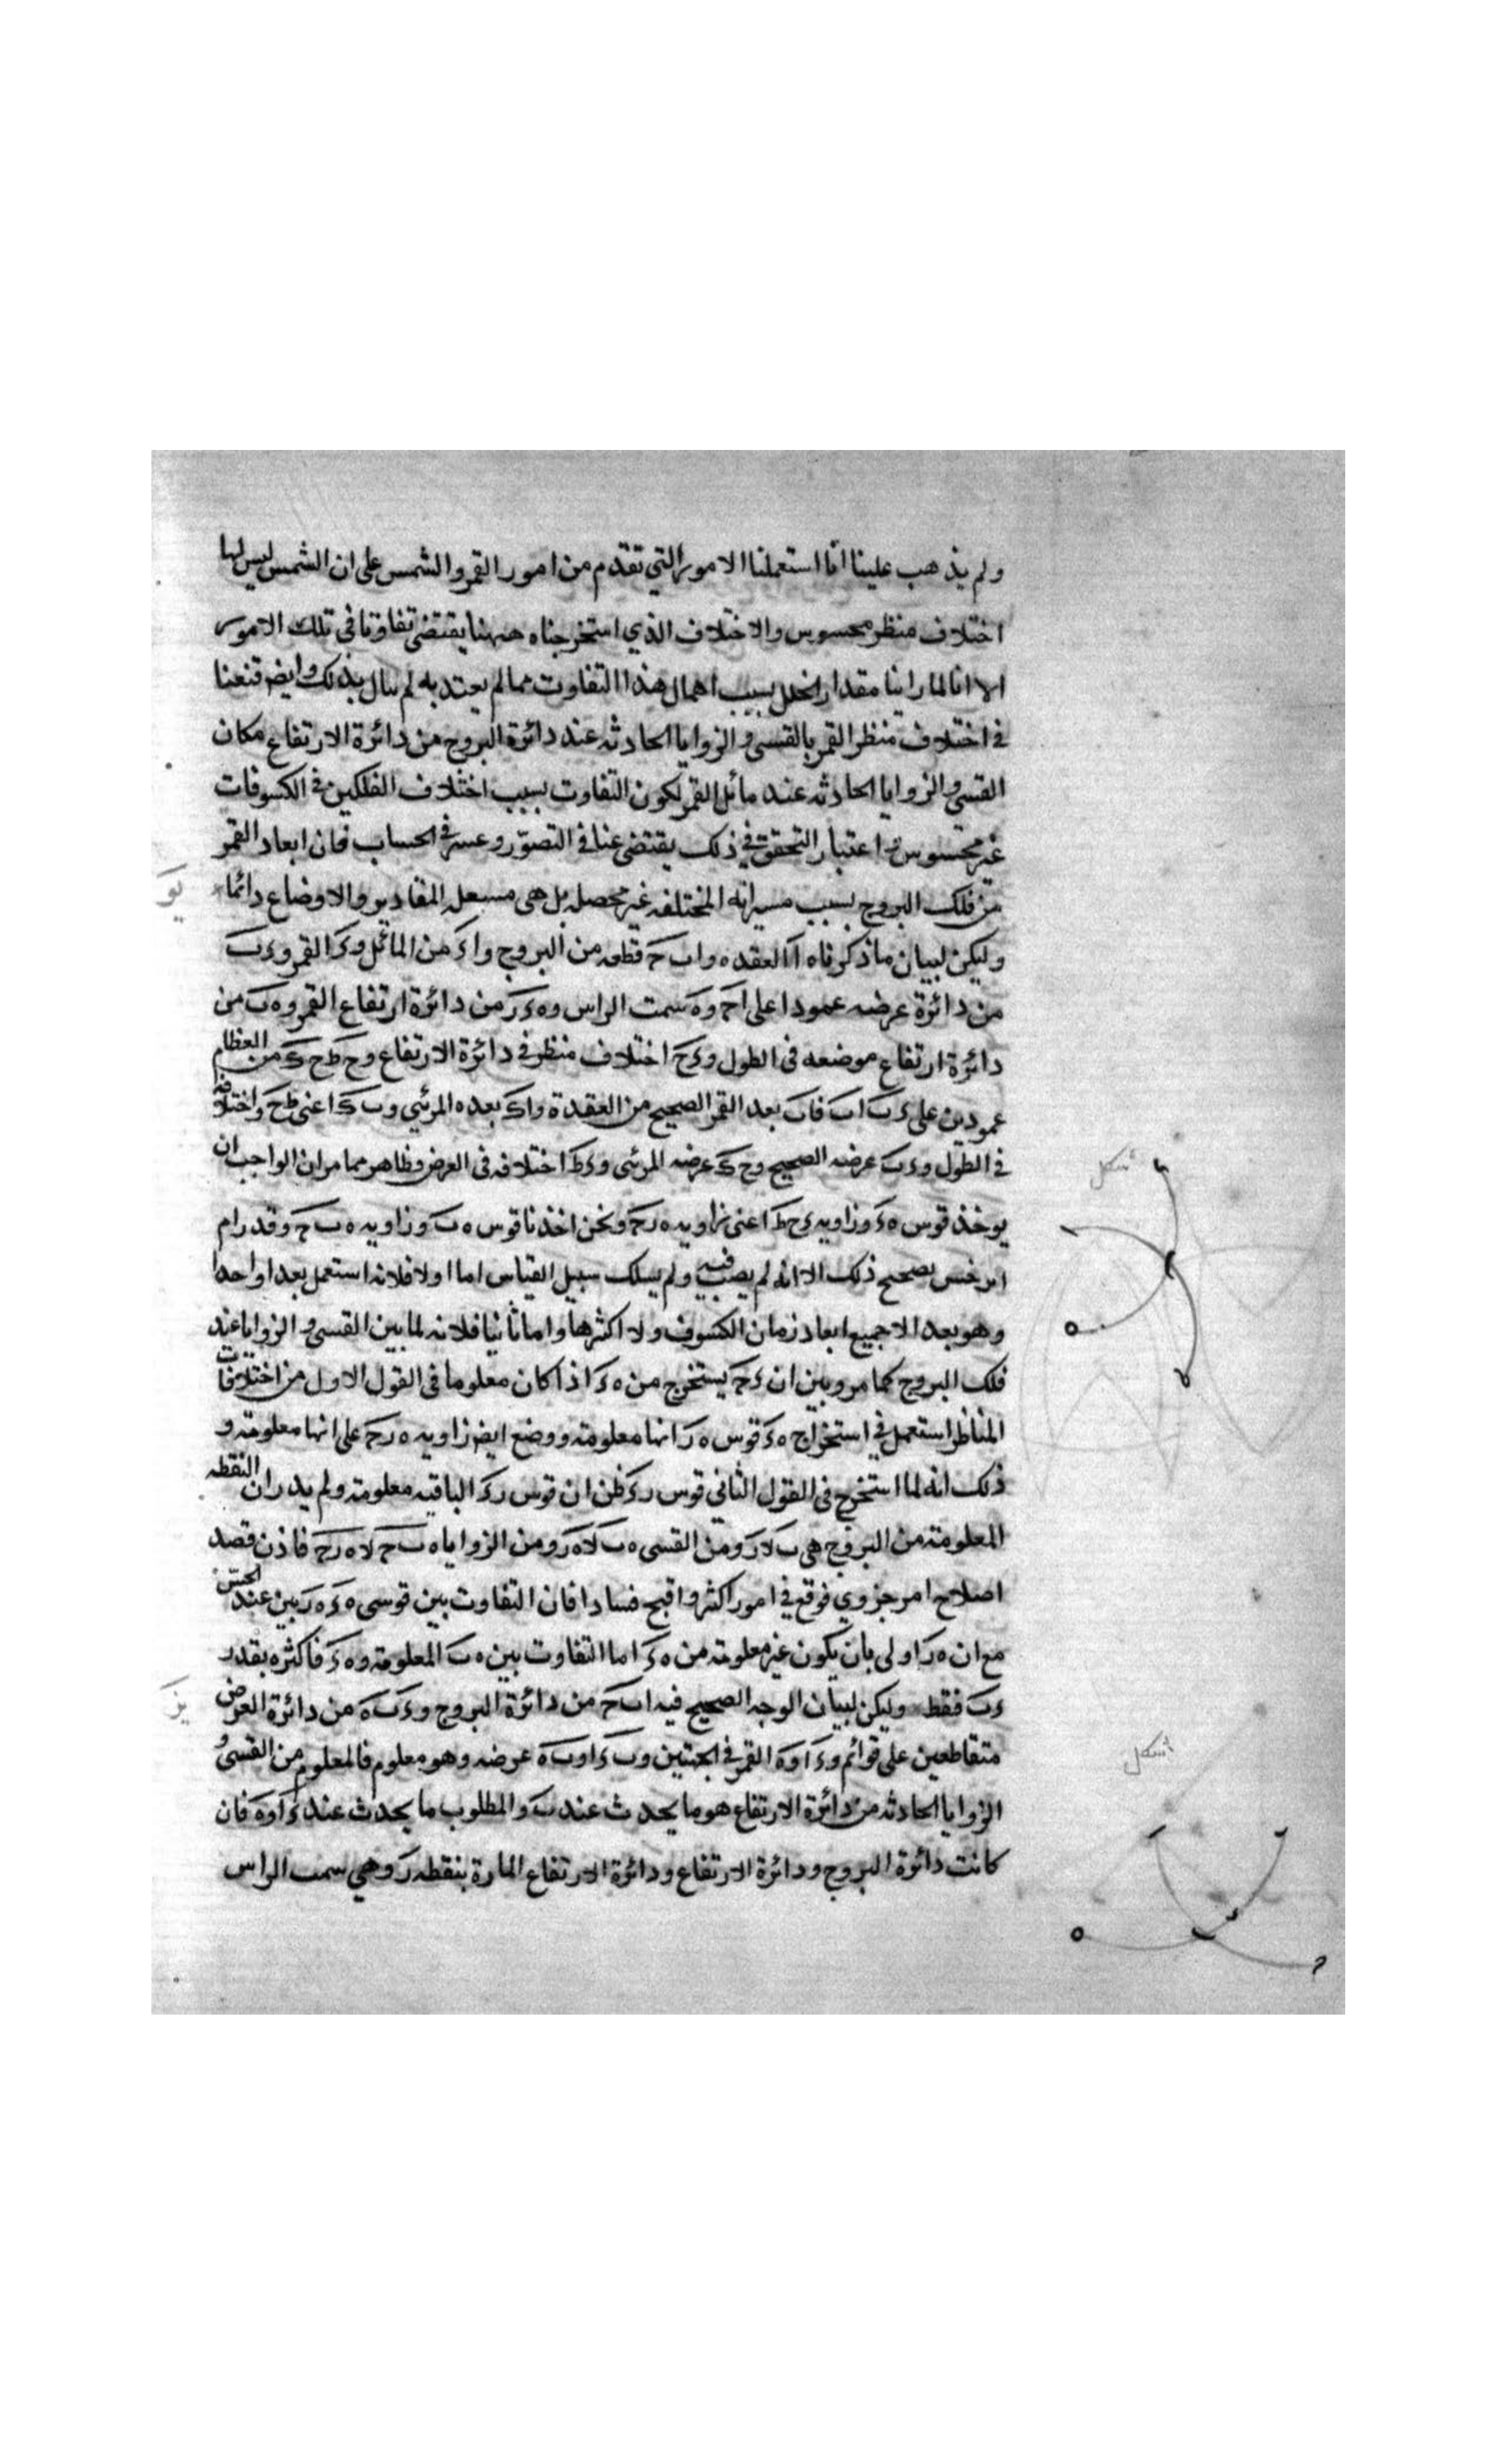 ولم يذهب علينا انا استعملنا الامور التي تقدم من امور القمر والشمس على ان الشمس ليس لها
اختلاف منظر محسوس والاختلاف الذي استخرجناه ههنا يقتضي تفاوتا في تلك الامور
الا انا لما راينا مقدار الخلل بسبب اهمال هذا التفاوت مما لم يعتد به لم نبال بذلك وايضا قنعنا
في اختلاف منظر القمر بالقسي والزوايا الحادثه عند دائرة البروج من دائرة الارتفاع مكان
القسي والزوايا الحادثه عند مائل القمر لكون التفاوت بسبب اختلاف الفلكين في الكسوفات
غير محسوس و اعتبار التحقق في ذلك يقتضي عنا في التصور وعسر في الحساب فان ابعاد القمر
من فلك البروج بسبب مسيراته المختلفه غير محصله بل هي المقادير والاوضاع دائما
يو
وليكن لبيان ما ذكرناه ا العقده و اب ح قطعه من البروج و ا ء من المائل و ء القمر و ء ب
من دائرة عرضه عمودا على ا ح و ه سمت الراس و ه ء ر من دائرة ارتفاع القمر و ه ب من
دائرة ارتفاع موضعه في الطول و ء ح اختلاف منظر في دائرة الارتفاع و ح ط ح ك من العظام
عمودين على ء ب اب فاب بعد القمر الصحيح من العقدة و اك بعده المرئي و ب ك اعني ط ح واختلافه
في الطول و ء ب عرضه الصحيح و ح ك عرضه المرئي و ء ط اختلافه في العرض وظاهر مما مر ان الواجب ان
يوخذ قوس ه ء و زاويه ء ح ط اعني زاويه ه ر ح ونحن اخذنا قوس ه ب و زاويه ه ب ح وقد رام
ابرخس تصحيح ذلك الا انه لم يصب فيه ولم يسلك سبيل القياس اما اولا فلانه استعمل بعدا واحدا
وهو بعد لا جميع ابعاد زمان الكسوف ولا اكثرها واما ثانيا فلانه لما بين القسي والزوايا عند
فلك البروج كما مر وبين ان ء ح يستخرج من ه ء اذا كان معلوما في القول الاول من اختلافات
المناظر استعمل في استخراج ه ء قوس ه ر انها معلومة ووضع ايضا زاويه ه ر ح على انها معلومة و
ذلك انه لما استخرج في القول الثاني قوس ر ء ظن ان قوس ر ء الباقيه معلومة ولم يدر ان النقطه
المعلومة من البروج هي ب لا ر ومن القسي ه ب لا ه ر ومن الزوايا ه ب ح لا ه ر ح فاذن قصد
اصلاح امر جزوي فوقع في امور اكثر واقبح فسادا فان التفاوت بين قوسي ه ء ه ر بين عند الحس
مع ان ه ر اولى بان يكون غير معلومة من ه ء اما التفاوت بين ه ب المعلومة و ه ء فاكثره بقدر
ء ب فقط وليكن لبيان الوجه الصحيح فيه اب ح من دائرة البروج و ء ب ه من دائرة العرض
يز
متقاطعين على قوائم و ء او ه القمر في الجهتين و ب ء او ب ه عرضه وهو معلوم فالمعلوم من القسي و
الزوايا الحادثه من دائرة الارتفاع هو ما يحدث عند ب والمطلوب ما يحدث عند ء او ه فان
كانت دائرة البروج ودائرة الارتفاع ودائرة الارتفاع المارة بنقطه ر وهي سمت الراس
شكل
شكل